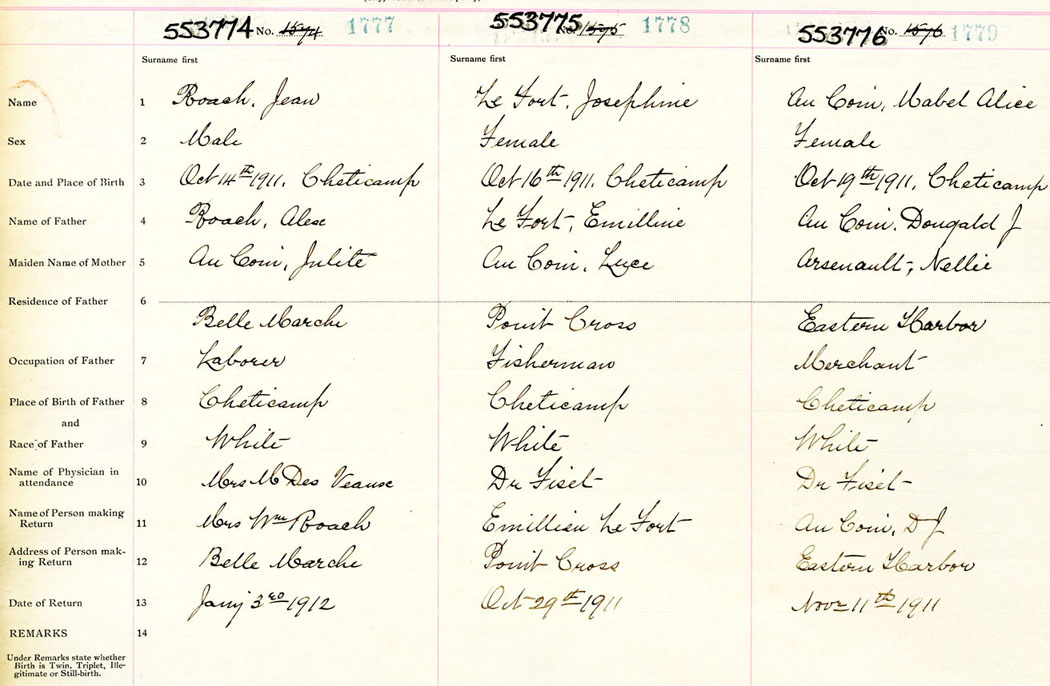 553774 No. 1574 1777 553775 No. 1575 1778 553776 No. 1576 1779
Surname first Surname first Surname first
Name 1 Roach, Jean Le Fort, Josephine Au Coin, Mabel Alice
Sex 2 Male Female Female
Date and Place of Birth 3 Oct 14th 1911. Cheticamp Oct 16th 1911. Cheticamp Oct 19th 1911, Cheticamp
Name of Father 4 Roach, Alex Le Fort, Emilline Au Coin. Dougald J
Maiden Name of Mother 5 Au Coin, Julite Au Coin, Luce Arsenault, Nellie
Residence of Father 6
Belle Marche Point Cross Eastern Harbor
Occupation of Father 7 Laborer Fisherman Merchant
Place of Birth of Father 8 Cheticamp Cheticamp Cheticamp
and
Race of Father 9 White White White
Name of Physician in
attendance 10 Mrs M Des Veause Dr Fiset Dr Fiset
Name of Person making
Return 11 Mrs Wm Roach Emillien Le Fort Au Coin, D J
Address of Person mak-
ing Return 12 Belle Marche Point Cross Eastern Harbor
Date of Return 13 Jany 3rd 1912 Oct 29th 1911 Nov 11th 1911
REMARKS 14
Under Remarks state whether
Birth is Twin, Triplet, Ille-
gitimate or Still-birth.